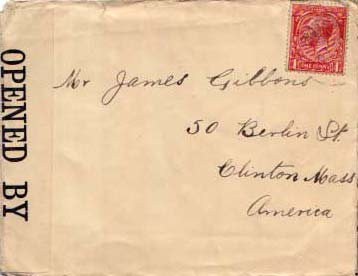 OPENED BY
Mr James Gibbons
50 Berlin St.
Clinton Mass
America
1 ONE PENNY 1